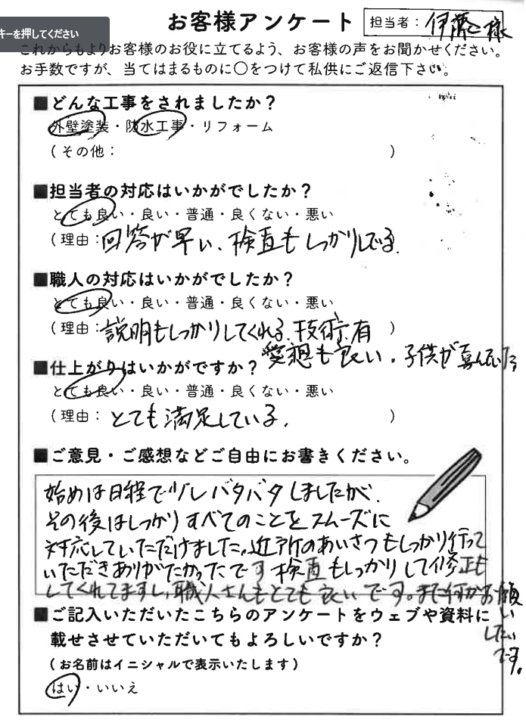 キーを押してください
お客様アンケート
担当者：伊藤 様
これからもよりお客様のお役に立てるよう、お客様の声をお聞かせください。
お手数ですが、当てはまるものに〇をつけて私供にご返信下さい。
■どんな工事をされましたか？
外壁塗装・防水工事・リフォーム
（その他：　）
■担当者の対応はいかがでしたか？
とても良い・良い・普通・良くない・悪い
（理由：回答が早い、検査もしっかりしてる。
■職人の対応はいかがでしたか？
とても良い・良い・普通・良くない・悪い
（理由：説明もしっかりしてくれる。技術有）
愛想も良い、子供が喜んでいた
■仕上がりはいかがですか？
とても良い・良い・普通・良くない・悪い
（理由：とても満足している。）
■ご意見・ご感想などご自由にお書きください。
始めは日程でズレバタバタしましたが、
その後はしっかりすべてのことをスムーズに
対応していただけました。近所のあいさつもしっかり行って
いただきありがたかったです 検査もしっかりして修正も
してくれてますし、職人さんもとても良いです。また何かお願
いしたいです。
■ご記入いただいたこちらのアンケートをウェブや資料に
載せさせていただいてもよろしいですか？
（お名前はイニシャルで表示いたします）
はい・いいえ